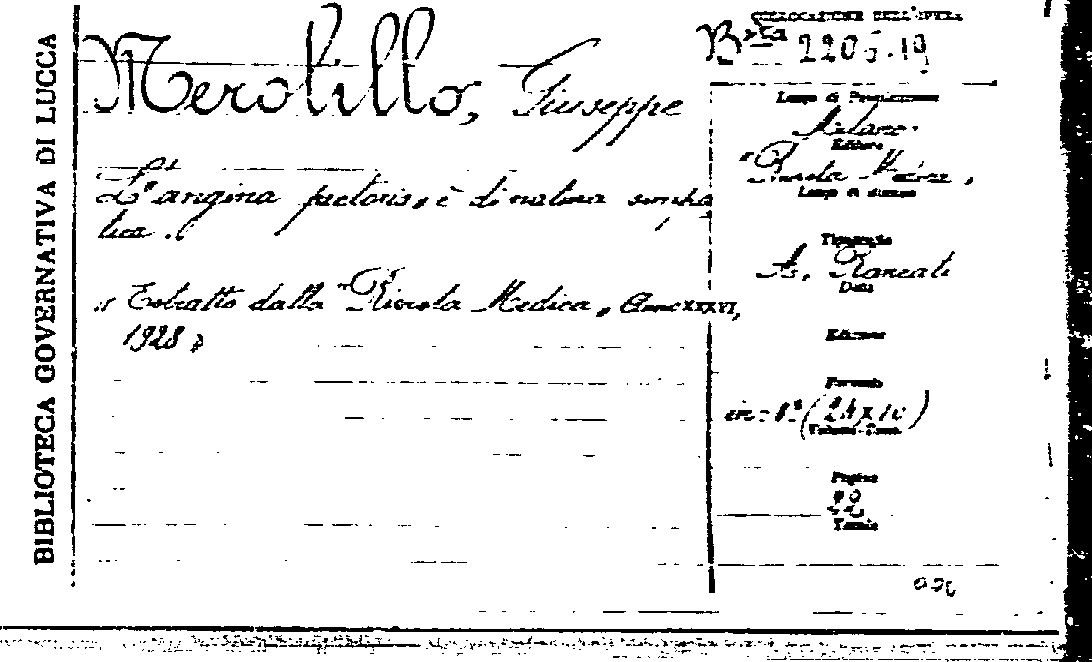 BIBLIOTECA GOVERNATIVA DI LUCCA
Merolillo, Giuseppe
L'angina pectoris, è di natura simpa
tica.
« Estratto dalla "Rivista Medica, Anno XXXVI,
1928 »
COLLOCAZIONE DELL'OPERA
Bsta 2205.19
Luogo di Pubblicazione
Milano.
Editore
"Rivista Medica,
Luogo di stampa
Tipografia
A. Rancati
Data
Edizione
Formato
in-8°(24x10)
Pagine
Tavole